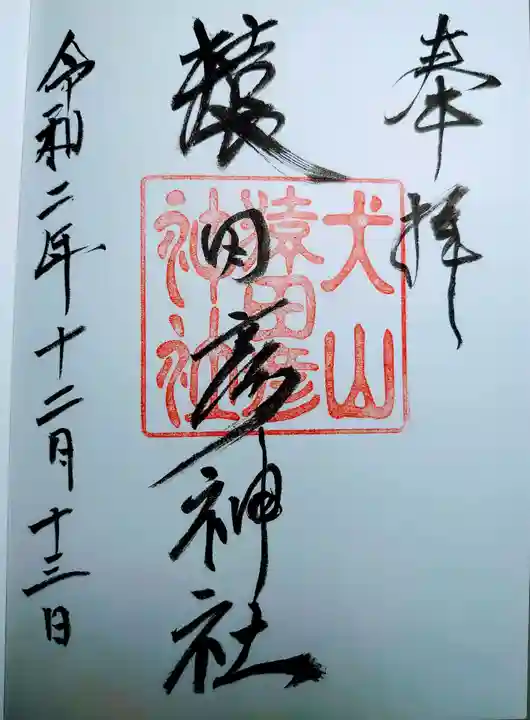 奉拝
犬山
猿田彦
神社
猿田彦神社
令和二年十二月十三日